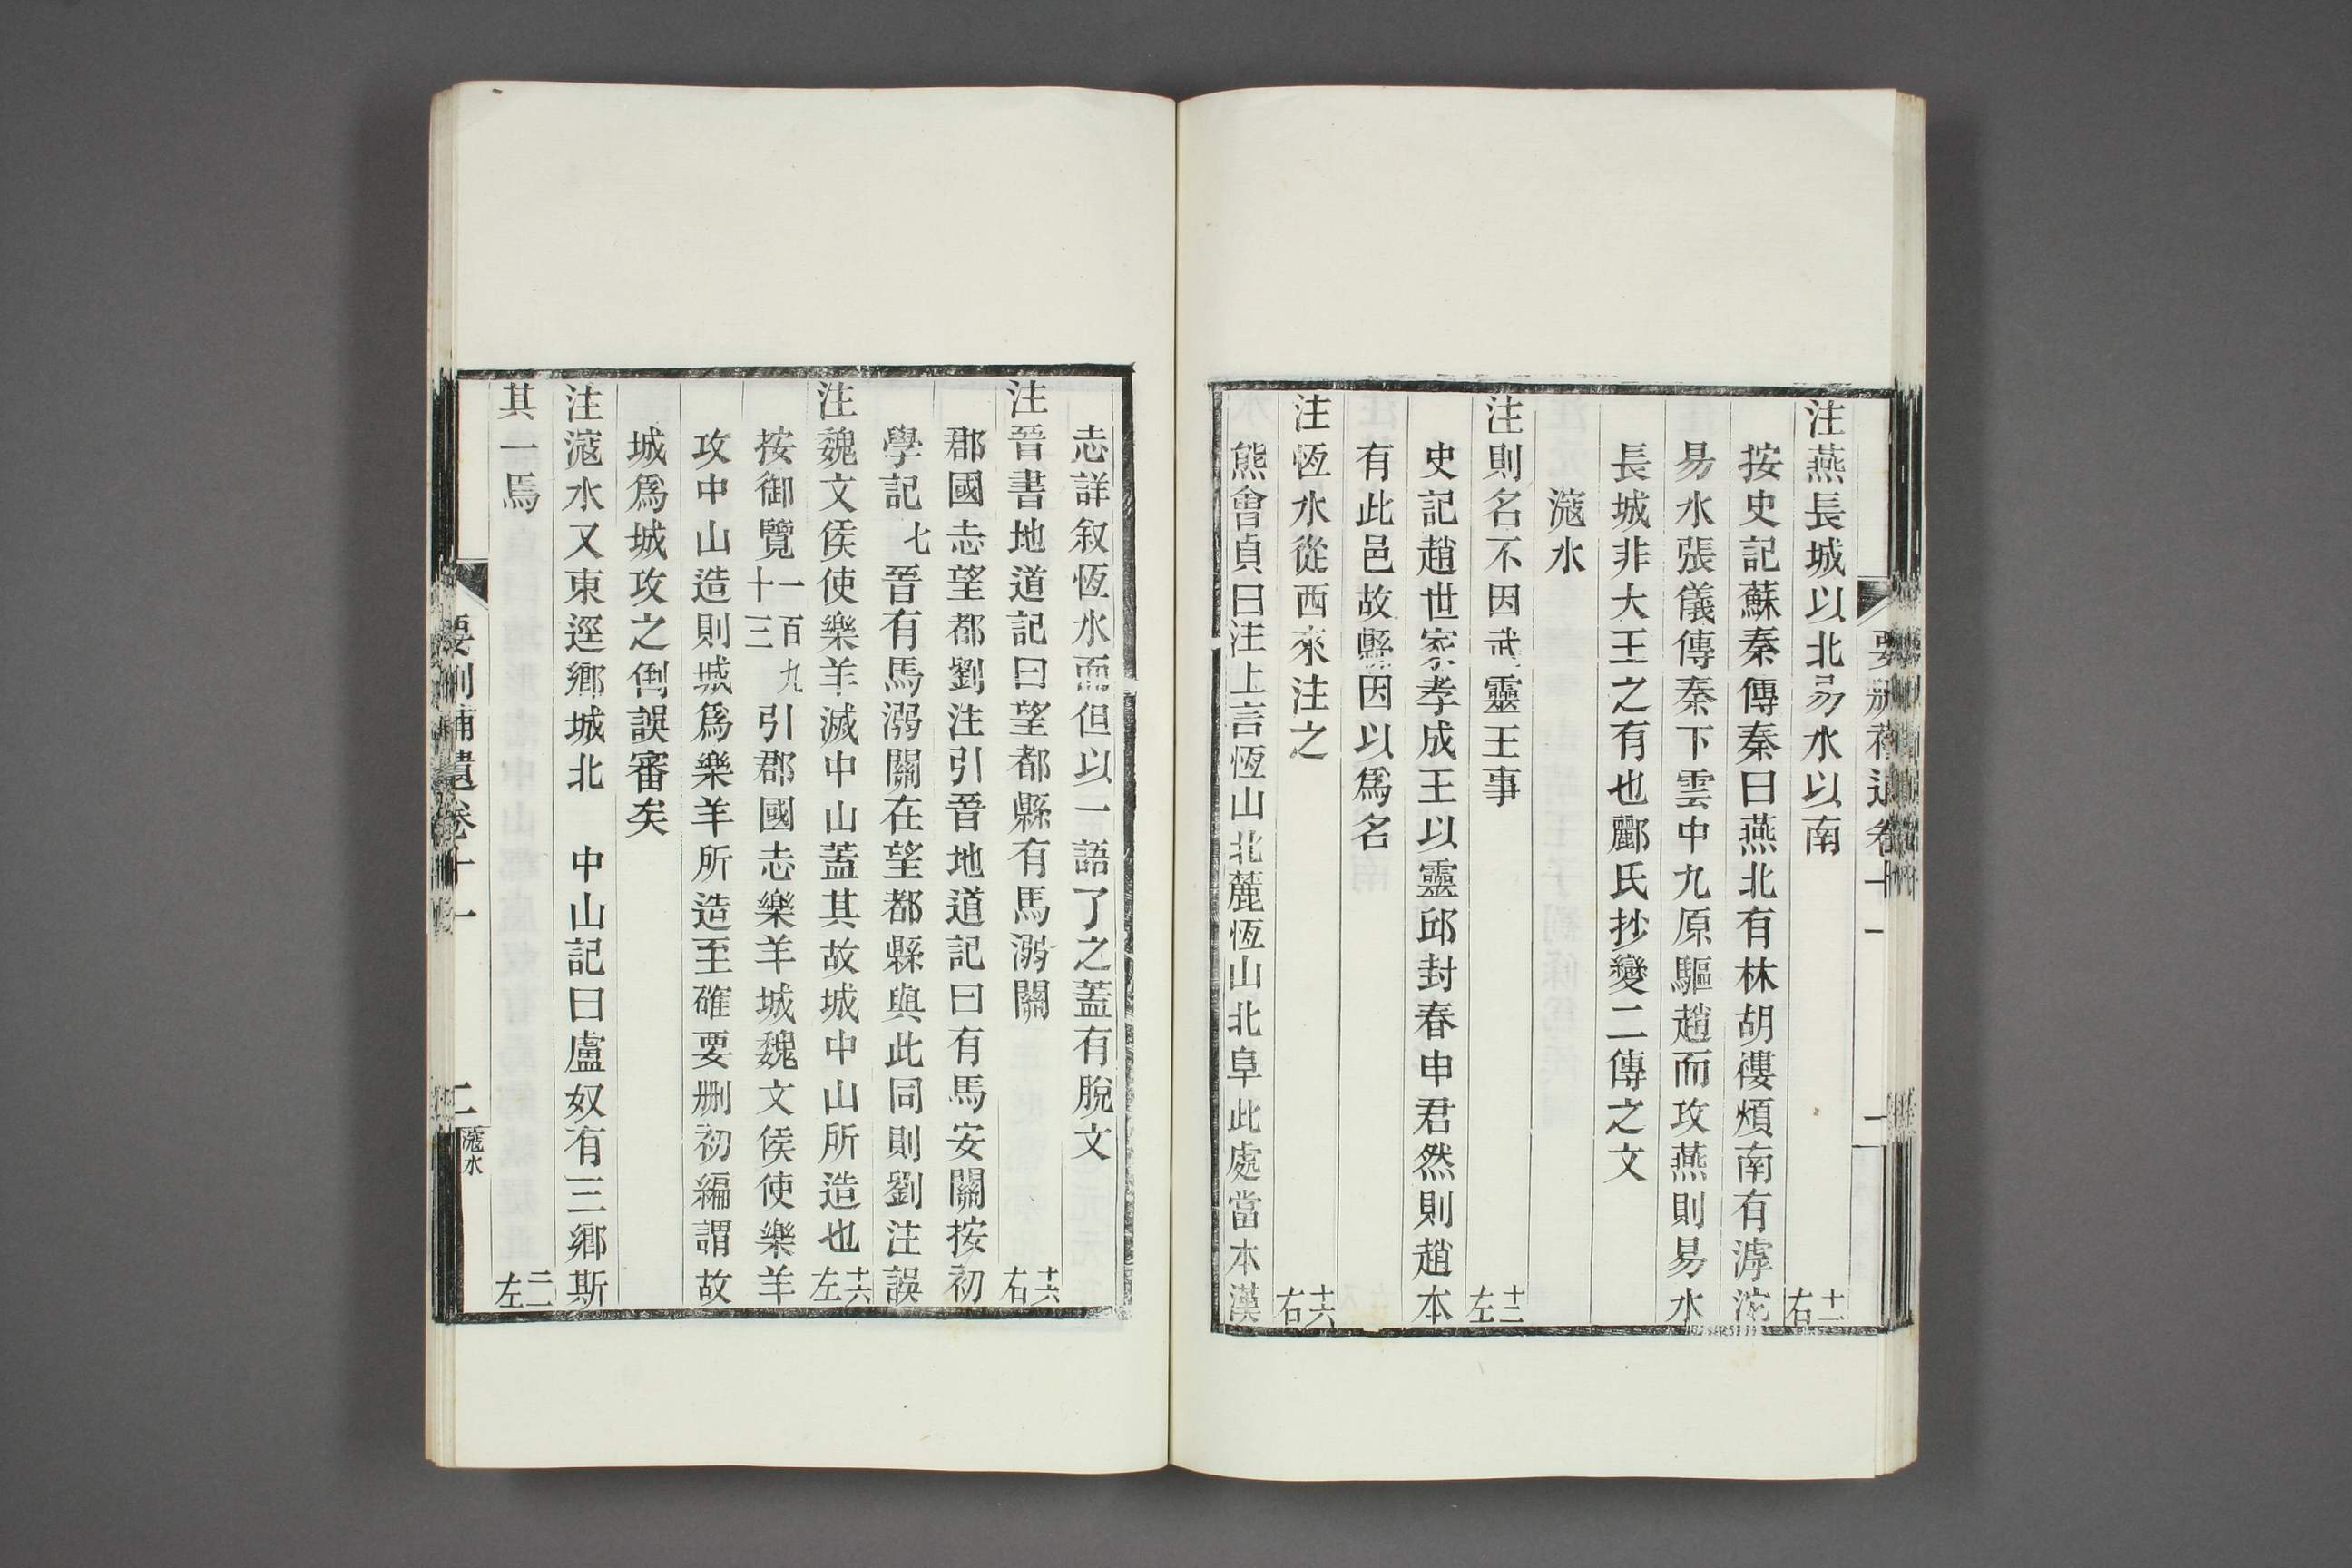 注燕長城以北易水以南 十一右
按史記蘇秦傳秦曰燕北有林胡樓煩南有滹沱
易水張儀傳秦下雲中九原驅趙而攻燕則易水
長城非大王之有也酈氏抄變二傳之文
滱水
注則名不因武靈王事 十二左
史記趙世家孝成王以靈邱封春申君然則趙本
有此邑故縣因以爲名
注恆水從西來注之 十六右
熊會貞曰注上言恆山北麓恆山北阜此處當本漢
志詳叙恆水而但以一語了之蓋有脫文
注晉書地道記曰望都縣有馬溺關 十六右
郡國志望都劉注引晉地道記曰有馬安關按初
學記七晉有馬溺關在望都縣與此同則劉注誤
注魏文侯使樂羊滅中山蓋其故城中山所造也 十六左
按御覽一百九十三引郡國志樂羊城魏文侯使樂羊
攻中山造則城爲樂羊所造至確要刪初編謂故
城爲城攻之倒誤審矣
注滱水又東逕鄉城北 中山記曰盧奴有三鄉斯
其一焉 二二左
要刪補遺卷十一 二 滱水